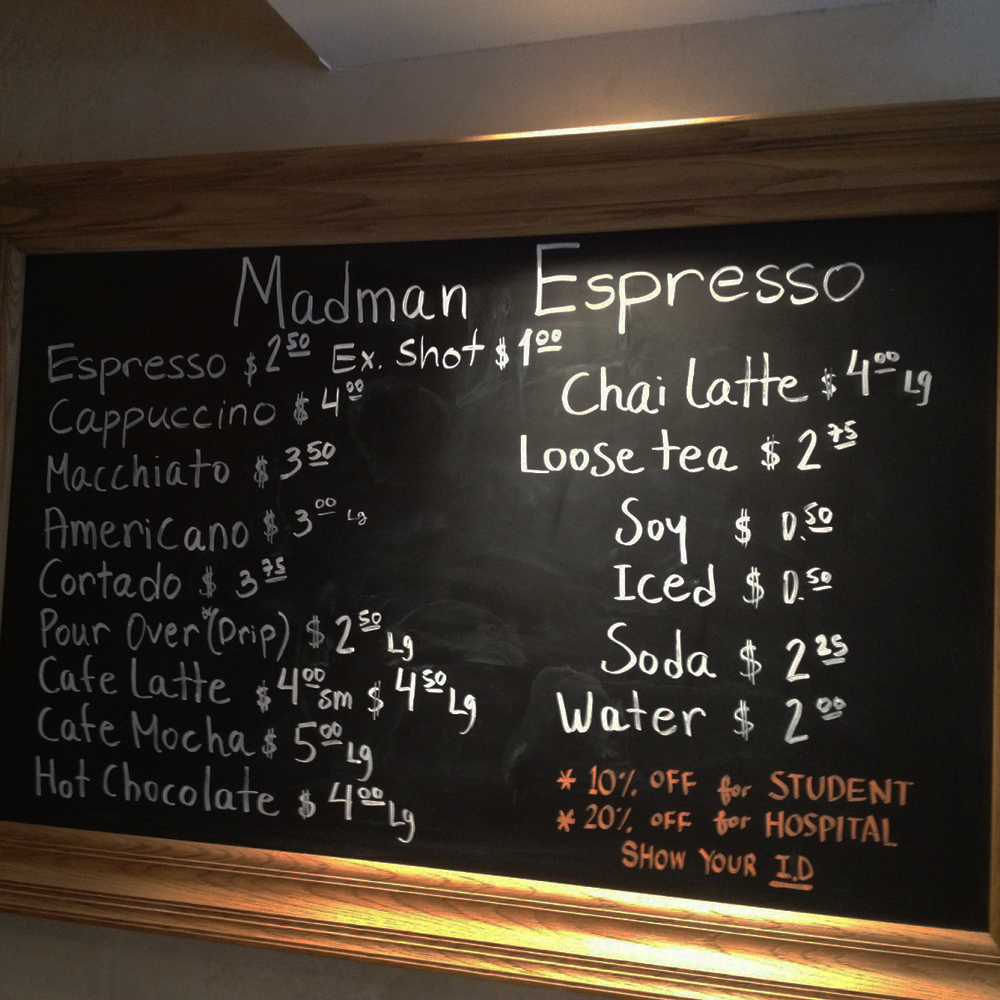 Madman Espresso
Espresso $2.50 Ex. Shot $1.00
Cappuccino $4.00
Macchiato $3.50
Americano $3.00 Lg
Cortado $3.75
Pour Over (Drip) $2.50 Lg
Cafe Latte $4.00 sm $4.50 Lg
Cafe Mocha $5.00 Lg
Hot Chocolate $4.00 Lg
Chai Latte $4.00 Lg
Loose tea $2.75
Soy $0.50
Iced $0.50
Soda $2.25
Water $2.00
* 10% OFF for STUDENT
* 20% OFF for HOSPITAL
SHOW YOUR I.D